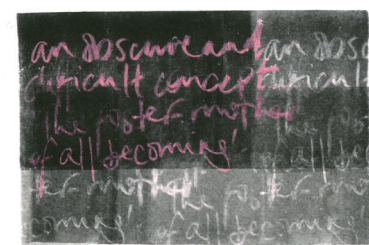 an obscure and an obsc
difficult concept difficult
'the foster mother 'the foste
of all becoming' of all b
ter mother 'the foster
coming' of all becoming'